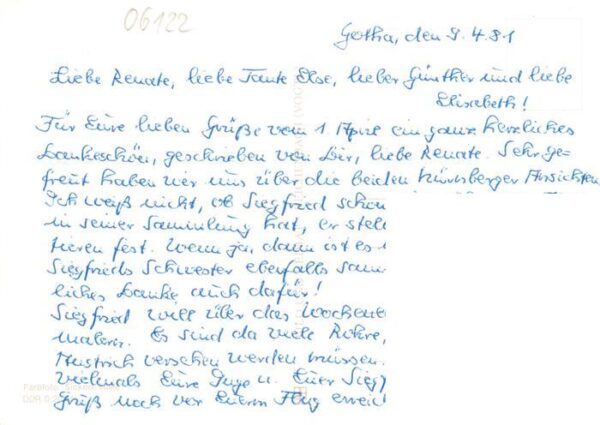 06122
Gotha, den 9.4.81
Liebe Renate, liebe Tante Else, lieber Günther und liebe
Elisabeth!
Für Eure lieben Grüße vom 1 April ein ganz herzliches
Dankeschön, geschrieben von Dir, liebe Renate. Sehr ge=
freut haben wir uns über die beiden Nürnberger Ansichten
Ich weiß nicht, ob Siegfried schon
in seiner Sammlung hat, er stell
tieren fest. Wenn ja, dann ist es
Siegfrieds Schwester ebenfalls sam
liches Danke auch dafür!
Siegfried will über das Wochene
malern. Es sind da viele Rohre,
Anstrich versehen werden müssen.
Vielmals Eure Inge u. Euer Sieg
Gruß noch vor Eurem Flug erreic